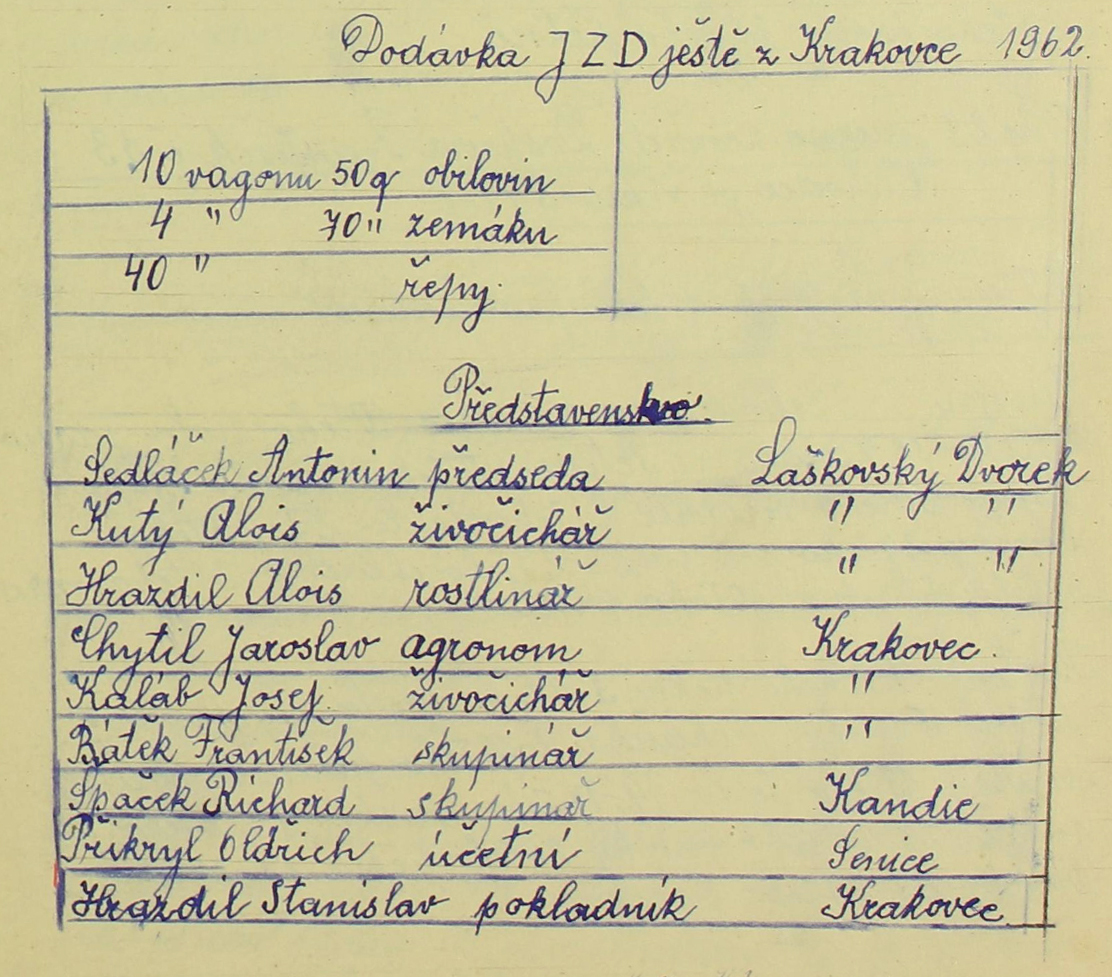 Dodávka JZD ještě z Krakovce 1962.
10 vagonu 50q obilovin
4 " 70" zemáku
40 " řepy
Představenstvo
Sedláček Antonin předseda Laškovský Dvorek
Kutý Alois živočichář " "
Hrazdil Alois rostlinář " "
Chytil Jaroslav agronom Krakovec.
Kaláb Josef. živočichář "
Bátěk František skupinář "
Spaček Richard skupinař Kandie
Přikryl Oldřich účetní Senice
Hrazdil Stanislav pokladník Krakovec.